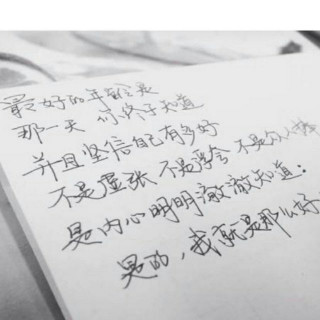 最好的年龄是
那一天 你终于知道
并且坚信自己有多好
不是虚张 不是浮夸 不是众人捧
是内心明明澈澈知道:
是的,我就是那么好